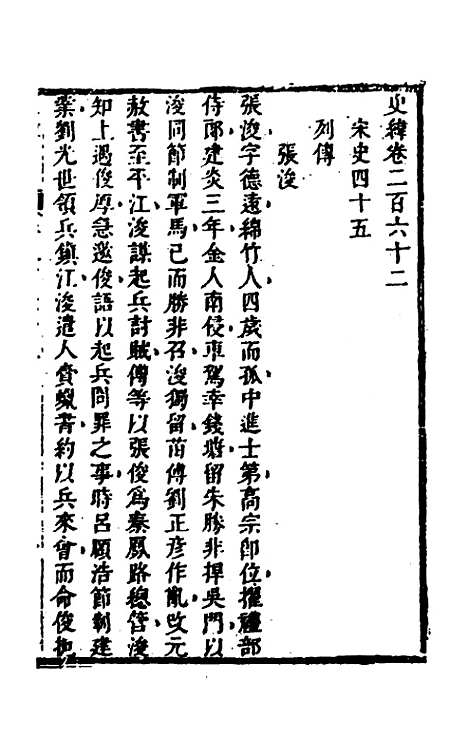 史緯卷二百六十二
宋史四十五
列傳
張浚
張浚字德遠綿竹人四歲而孤中進士第高宗卽位擢禮部
侍郎建炎三年金人南侵車駕幸錢塘留朱勝非捍吳門以
浚同節制軍馬已而勝非召浚獨留苗傅劉正彥作亂改元
赦書至平江浚謀起兵討賊傅等以張俊爲秦鳳路總管浚
知上遇俊厚急邀俊語以起兵問罪之事時呂頤浩節制建
業劉光世領兵鎮江浚遣人齎蠟書約以兵來會而命俊扼